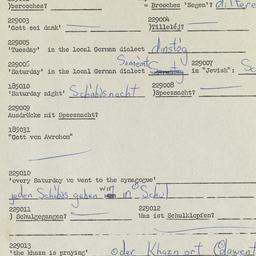 )berooches? = Brooches 'Segen'? differe
229003 229004
'Gott sei dank' )Tillelój?
229005
'Tuesday' in the local German dialect dinstig
229006 229007
'Saturday' in the local German dialect Samstig in "Jewish":
185010 229008
'Saturday night' Schabosnacht )Speesnacht?
229009
Ausdrücke mit Speesnacht?
185031
"Gott von Awrohom"
229010
'every Saturday we went to the synagogue'
jeden Schabos gehen wir in Schul
229011 229012
) Schulgegangen? Was ist Schulklopfen?
229013
'the khazn is praying' oder Khazn ort (dawent